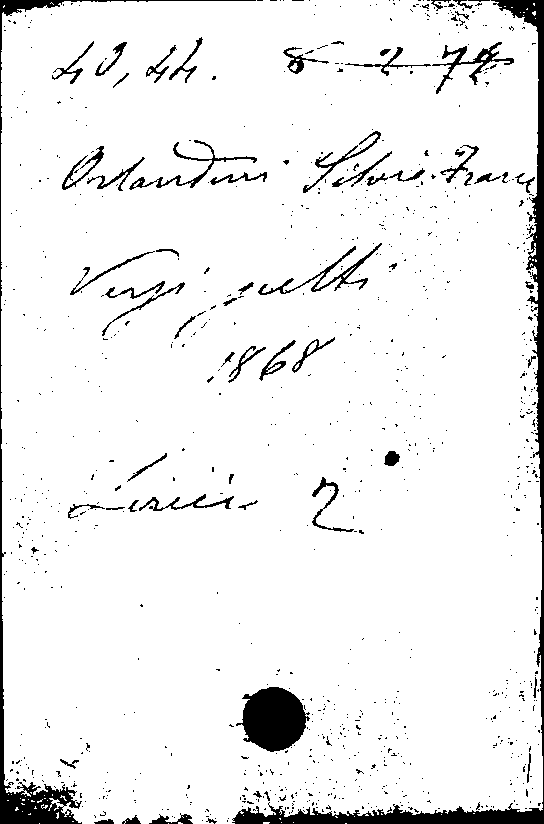 40,44. 8.2.72
Orlandini Silvio Franc
Versi scelti
1868
Lirici 2